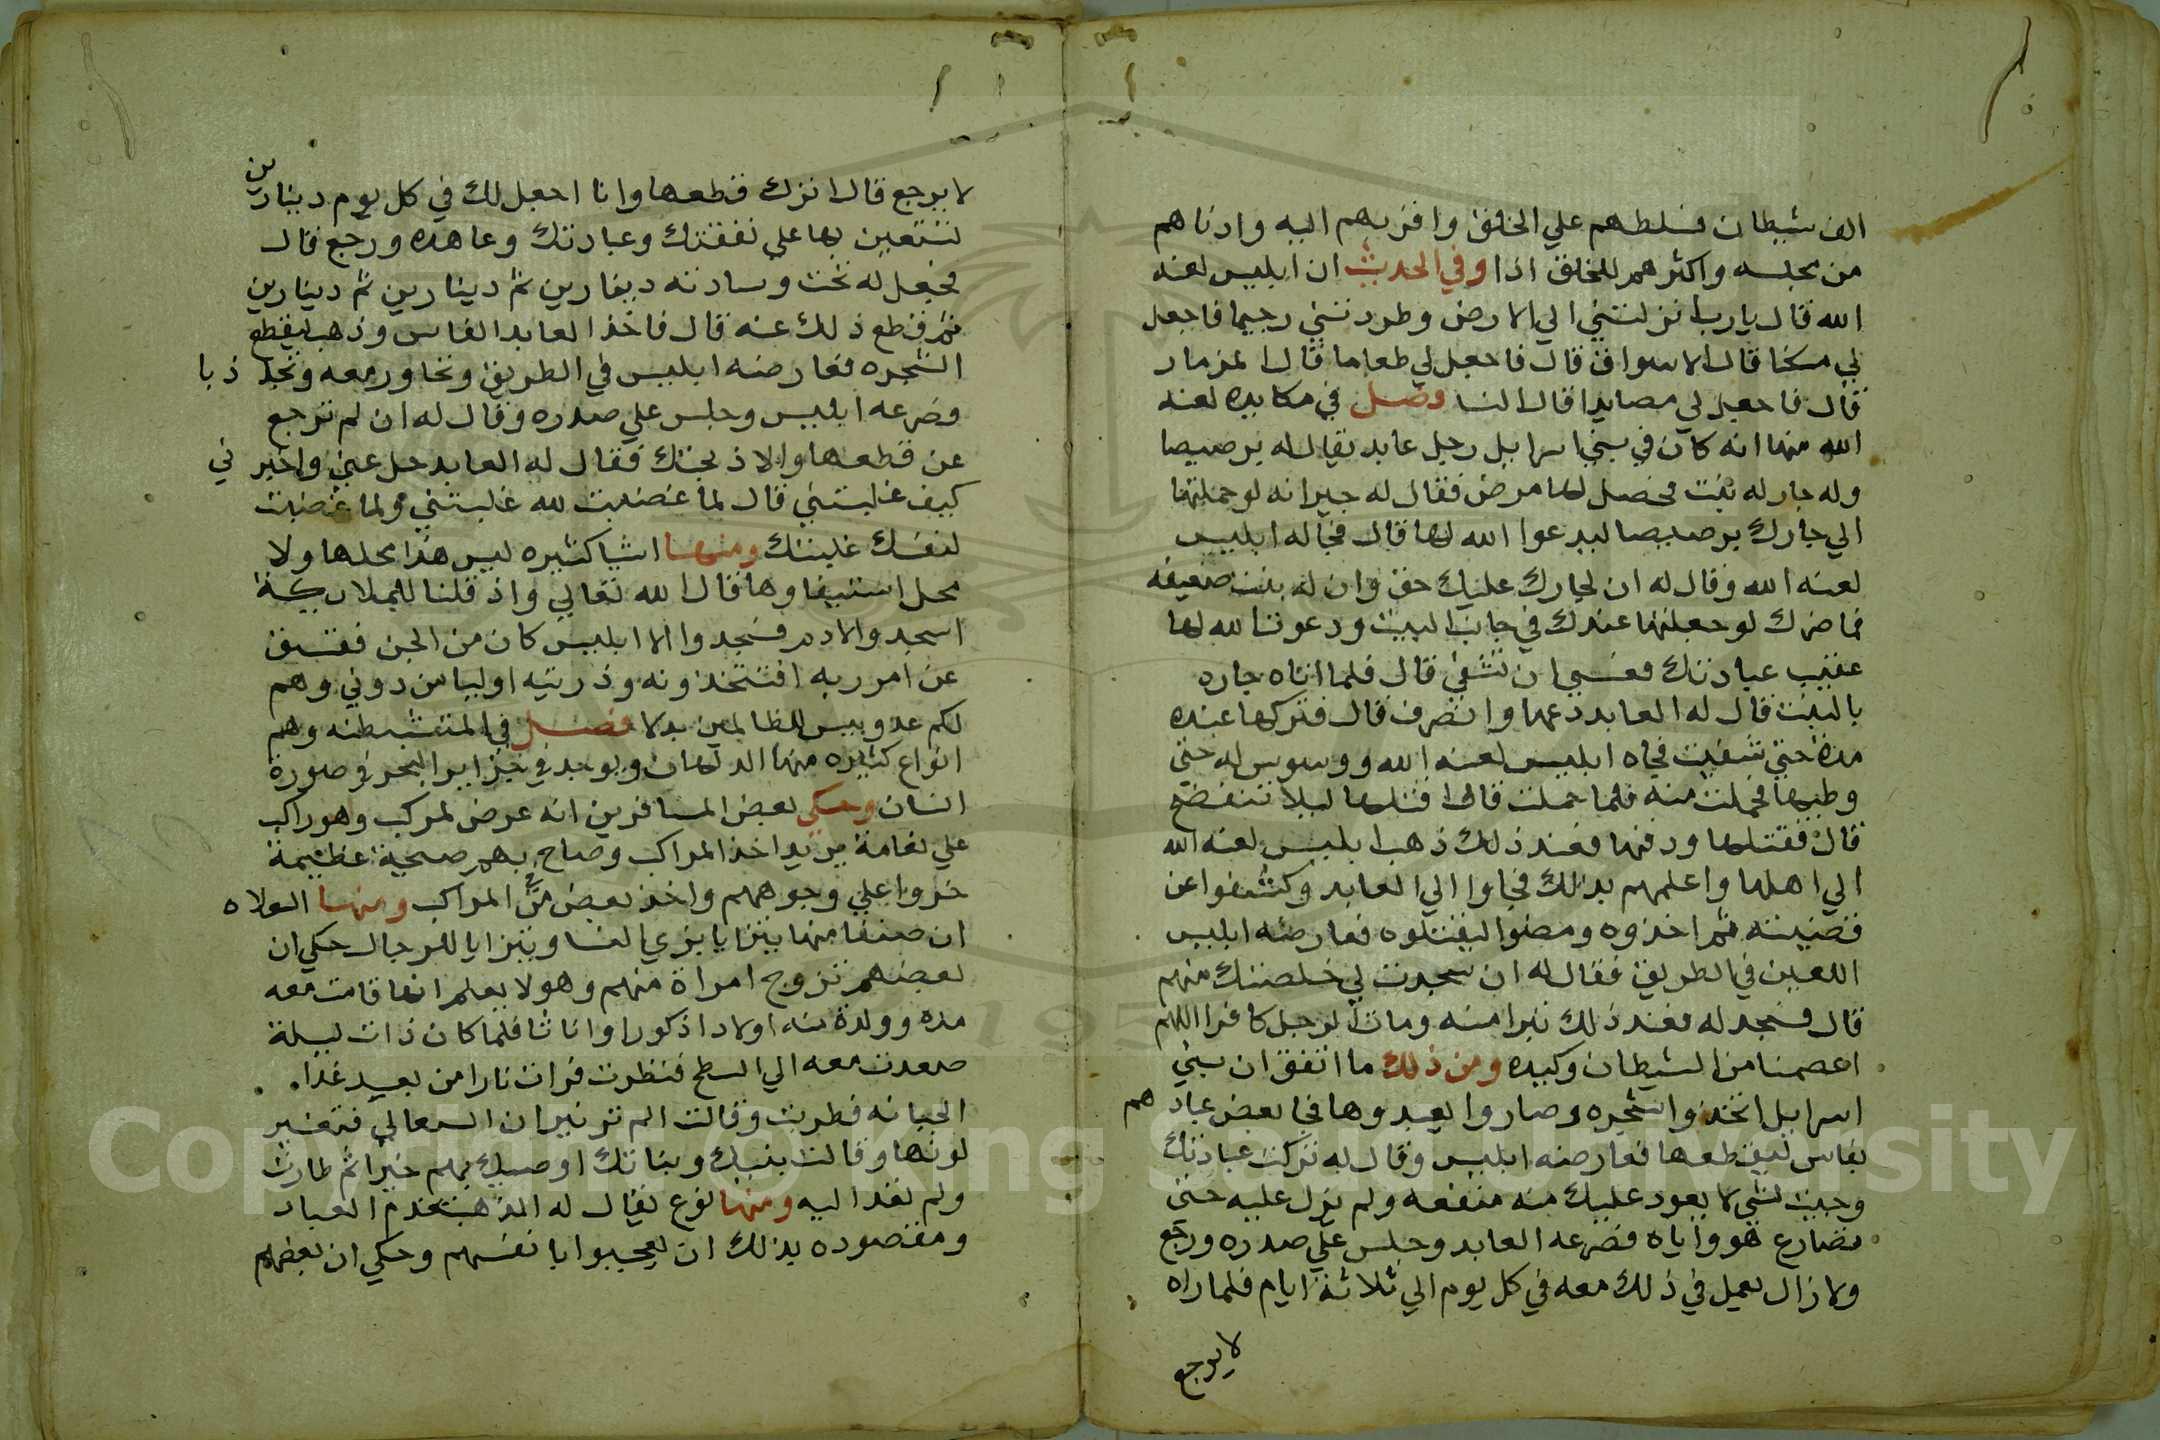 الف شيطان فسلطهم علي الخلق واقربهم اليه وادناهم
من مجلسه واكثرهم للخلق اذا وفي الحديث ان ابليس لعنه
الله قال يارب انزلتني الي الارض وطردتني رجيما فاجعل
لي مسكنا قال الاسواق قال فاجعل لي طعاما قال المزمار
قال فاجعل لي مصايدا قال النسا وصل في مكايده لعنه
الله منها انه كان في بني اسرايل رجل عابد يقال له برصيصا
وله جار له بنت فحصل لها مرض فقال له جيرانه لو حملتها
الي جارك برصيصا ليدعوا الله لها قال فجا له ابليس
لعنه الله وقال له ان لجارك عليك حق وان له بنت ضعيفه
فما ضرك لو جعلتها عندك في جانب البيت ودعوت الله لها
عقيب عبادتك فعسي ان تشفي قال فلما اتاه جاره
بالبنت قال له العابد دعها وانصرف قال فتركها عنده
مدة حتي شفيت فجاه ابليس لعنه الله ووسوس له حتي
وطيها فحملت منه فلما حملت قال اقتلها ليلا تنفضح
قال فقتلها ودفنها فعند ذلك ذهب ابليس لعنه الله
الي اهلها واعلمهم بذلك فجاوا الي العابد وكشفوا عن
قضيته ثم اخذوه ومضوا ليقتلوه فعارضه ابليس
اللعين في الطريق فقال له ان سجدت لي خلصتك منهم
قال فسجد له فعند ذلك تبرا منه ومات الرجل كافرا اللهم
اعصمنا من الشيطان وكيده ومن ذلك ما اتفق ان بني
اسرايل اتخذوا شجره وصاروا يعبدوها فجا بعض عبادهم
بفاس ليقطعها فعارضه ابليس وقال له تركت عبادتك
وجيت لشي لا يعود عليك منه منفعه ولم يزل عليه حتي
تضارع هو واياه فصرعه العابد وجلس علي صدره ورجع
ولا زال يعمل في ذلك معه في كل يوم الي ثلاثة ايام فلما راه
لا يرجع
لا يرجع قال اترك قطعها وانا اجعل لك في كل يوم دينارين
تستعين بها علي نفقتك وعبادتك وعاهده ورجع قال
فجعل له تحت وسادته دينارين ثم دينارين ثم دينارين
ثم قطع ذلك عنه قال فاخذ العابد الفاس وذهب ليقطع
الشجره فعارضه ابليس في الطريق وتحاور معه وتجاذبا
وصرعه ابليس وجلس علي صدره وقال له ان لم ترجع
عن قطعها والا ذبحتك فقال له العابد حل عني واخبرني
كيف غلبتني قال لما غضبت لله غلبتني ولما غضبت
لنفسك غلبتك ومنها اشيا كثيره ليس هذا محلها ولا
محل استيفاوها قال الله تعالي واذ قلنا للملايكة
اسجدوا لادم فسجدوا الا ابليس كان من الجن ففسق
عن امر ربه افتتخذونه وذريته اوليا من دوني وهم
لكم عدو وبيس للظالمين بدلا فصل في المتشيطنه وهم
انواع كثيره منها الدلهان ويوجد في جزاير البحر في صورة
انسان وحكي بعض المسافرين انه عرض لمركب وهو راكب
علي نعامة يريد اخذ المراكب وصاح بهم صيحة عظيمة
خروا علي وجوههم واخذ بعض من المراكب ومنها السعلاه
ان صنفا منها يتزايا بزي النسا ويتزايا للرجال حكي ان
بعضهم تزوج امراة منهم وهو لا يعلم انها قامت معه
مده وولدة منه اولادا ذكورا واناثا فلما كان ذات ليلة
صعدت معه الي السطح فنظرت فرات نارا من بعيد عند
الجبانه فطربت وقالت الم تر نيران السعالي فتغير
لونها وقالت بنيك وبناتك اوصيك بهم خيرا ثم طارت
ولم تعد اليه ومنها نوع يقال له المذهب يخدم العباد
ومقصوده بذلك ان يعجبوا بانفسهم وحكي ان بعضهم
Copyright © King Saud University